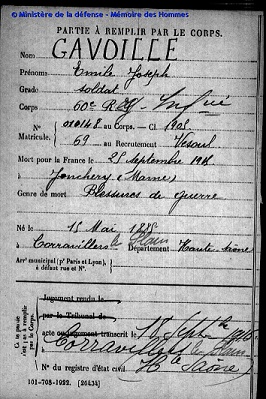 © Ministère de la défense - Mémoire des Hommes
PARTIE À REMPLIR PAR LE CORPS.
Nom GAVOILLE
Prénoms Emile Joseph
Grade soldat
Corps 60e R
N° 010148 au Corps. - Cl. 1905
Matricule. 69 au Recrutement Vesoul
Mort pour la France le 25 septembre 1915
à Jonchery (Marne)
Genre de mort Blessures de guerre
Né le 15 Mai 1885
à Corravillers le Plain Département Haute Saône
Arrt municipal (pr Paris et Lyon),
à défaut rue et N°.
Jugement rendu le
par le Tribunal de
acte ou jugement transcrit le 18 Septbre 1916
à Corravillers le Plain
Hte Saône
N° du registre d'état civil
Ce te partie
n'est pas à remplir
par le Corps.
101-708-1922. [26434]